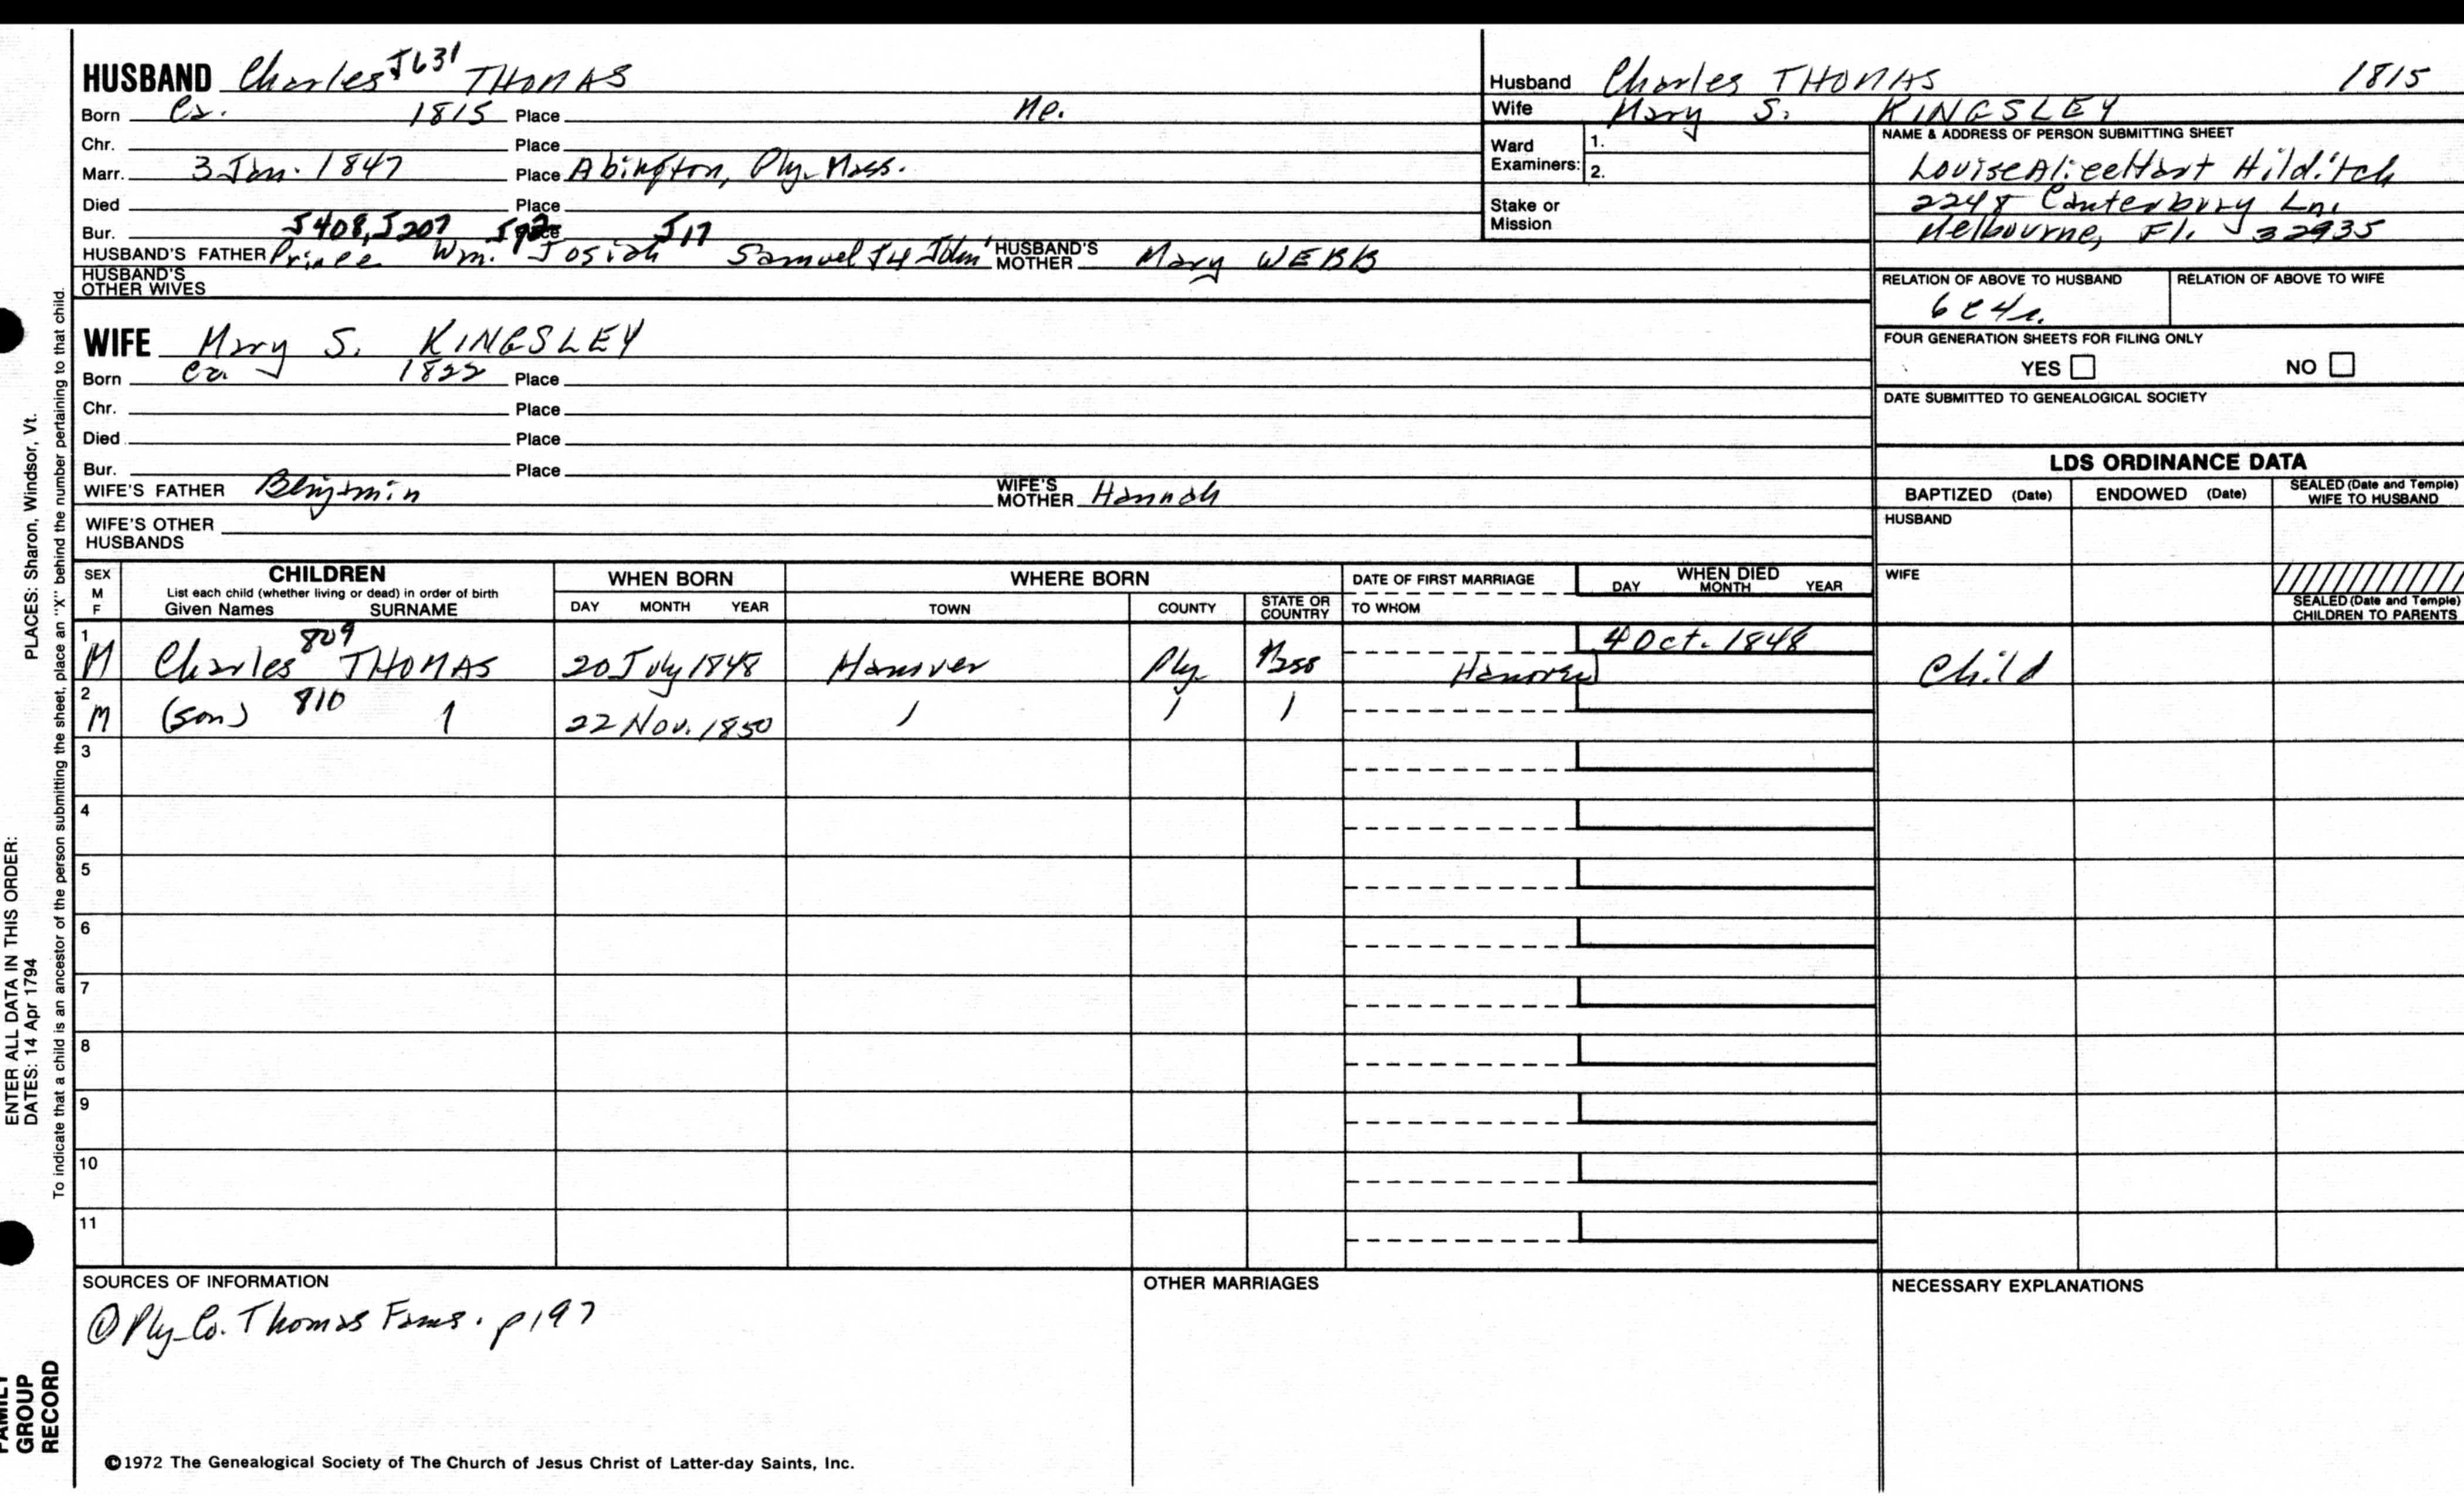 HUSBAND Charles J631 THOMAS
Born Ca. 1815 Place Me.
Chr. Place
Marr. 3 Jan. 1847 Place Abington, Ply. Mass.
Died Place
Bur. J408, J207 J92 J17
HUSBAND'S FATHER Prince Wm. Josiah Samuel J4 John' HUSBAND'S MOTHER Mary WEBB
HUSBAND'S OTHER WIVES
WIFE Mary S. KINGSLEY
Born Ca. 1822 Place
Chr. Place
Died Place
Bur. Place
WIFE'S FATHER Benjamin WIFE'S MOTHER Hannah
WIFE'S OTHER HUSBANDS
Husband Charles THOMAS 1815
Wife Mary S. KINGSLEY
Ward Examiners: 1.
2.
Stake or Mission
NAME & ADDRESS OF PERSON SUBMITTING SHEET
Louise Alice Hart Hilditch
2248 Canterbury Ln.
Melbourne, Fl. 32935
RELATION OF ABOVE TO HUSBAND RELATION OF ABOVE TO WIFE
6c4r.
FOUR GENERATION SHEETS FOR FILING ONLY
YES NO
DATE SUBMITTED TO GENEALOGICAL SOCIETY
LDS ORDINANCE DATA
BAPTIZED (Date) ENDOWED (Date) SEALED (Date and Temple) WIFE TO HUSBAND
HUSBAND
WIFE
SEALED (Date and Temple) CHILDREN TO PARENTS
SEX M F CHILDREN List each child (whether living or dead) in order of birth Given Names SURNAME
WHEN BORN DAY MONTH YEAR
WHERE BORN TOWN COUNTY STATE OR COUNTRY
DATE OF FIRST MARRIAGE TO WHOM
WHEN DIED DAY MONTH YEAR
1 M Charles 809 THOMAS 20 July 1848 Hanover Ply. Mass 4 Oct. 1848 Hanover Child
2 M (son) 810 22 Nov. 1850
3
4
5
6
7
8
9
10
11
SOURCES OF INFORMATION
① Ply. Co. Thomas Fams. p197
OTHER MARRIAGES
NECESSARY EXPLANATIONS
©1972 The Genealogical Society of The Church of Jesus Christ of Latter-day Saints, Inc.
ENTER ALL DATA IN THIS ORDER:
DATES: 14 Apr 1794 PLACES: Sharon, Windsor, Vt.
To indicate that a child is an ancestor of the person submitting the sheet, place an "X" behind the number pertaining to that child.
FAMILY GROUP RECORD